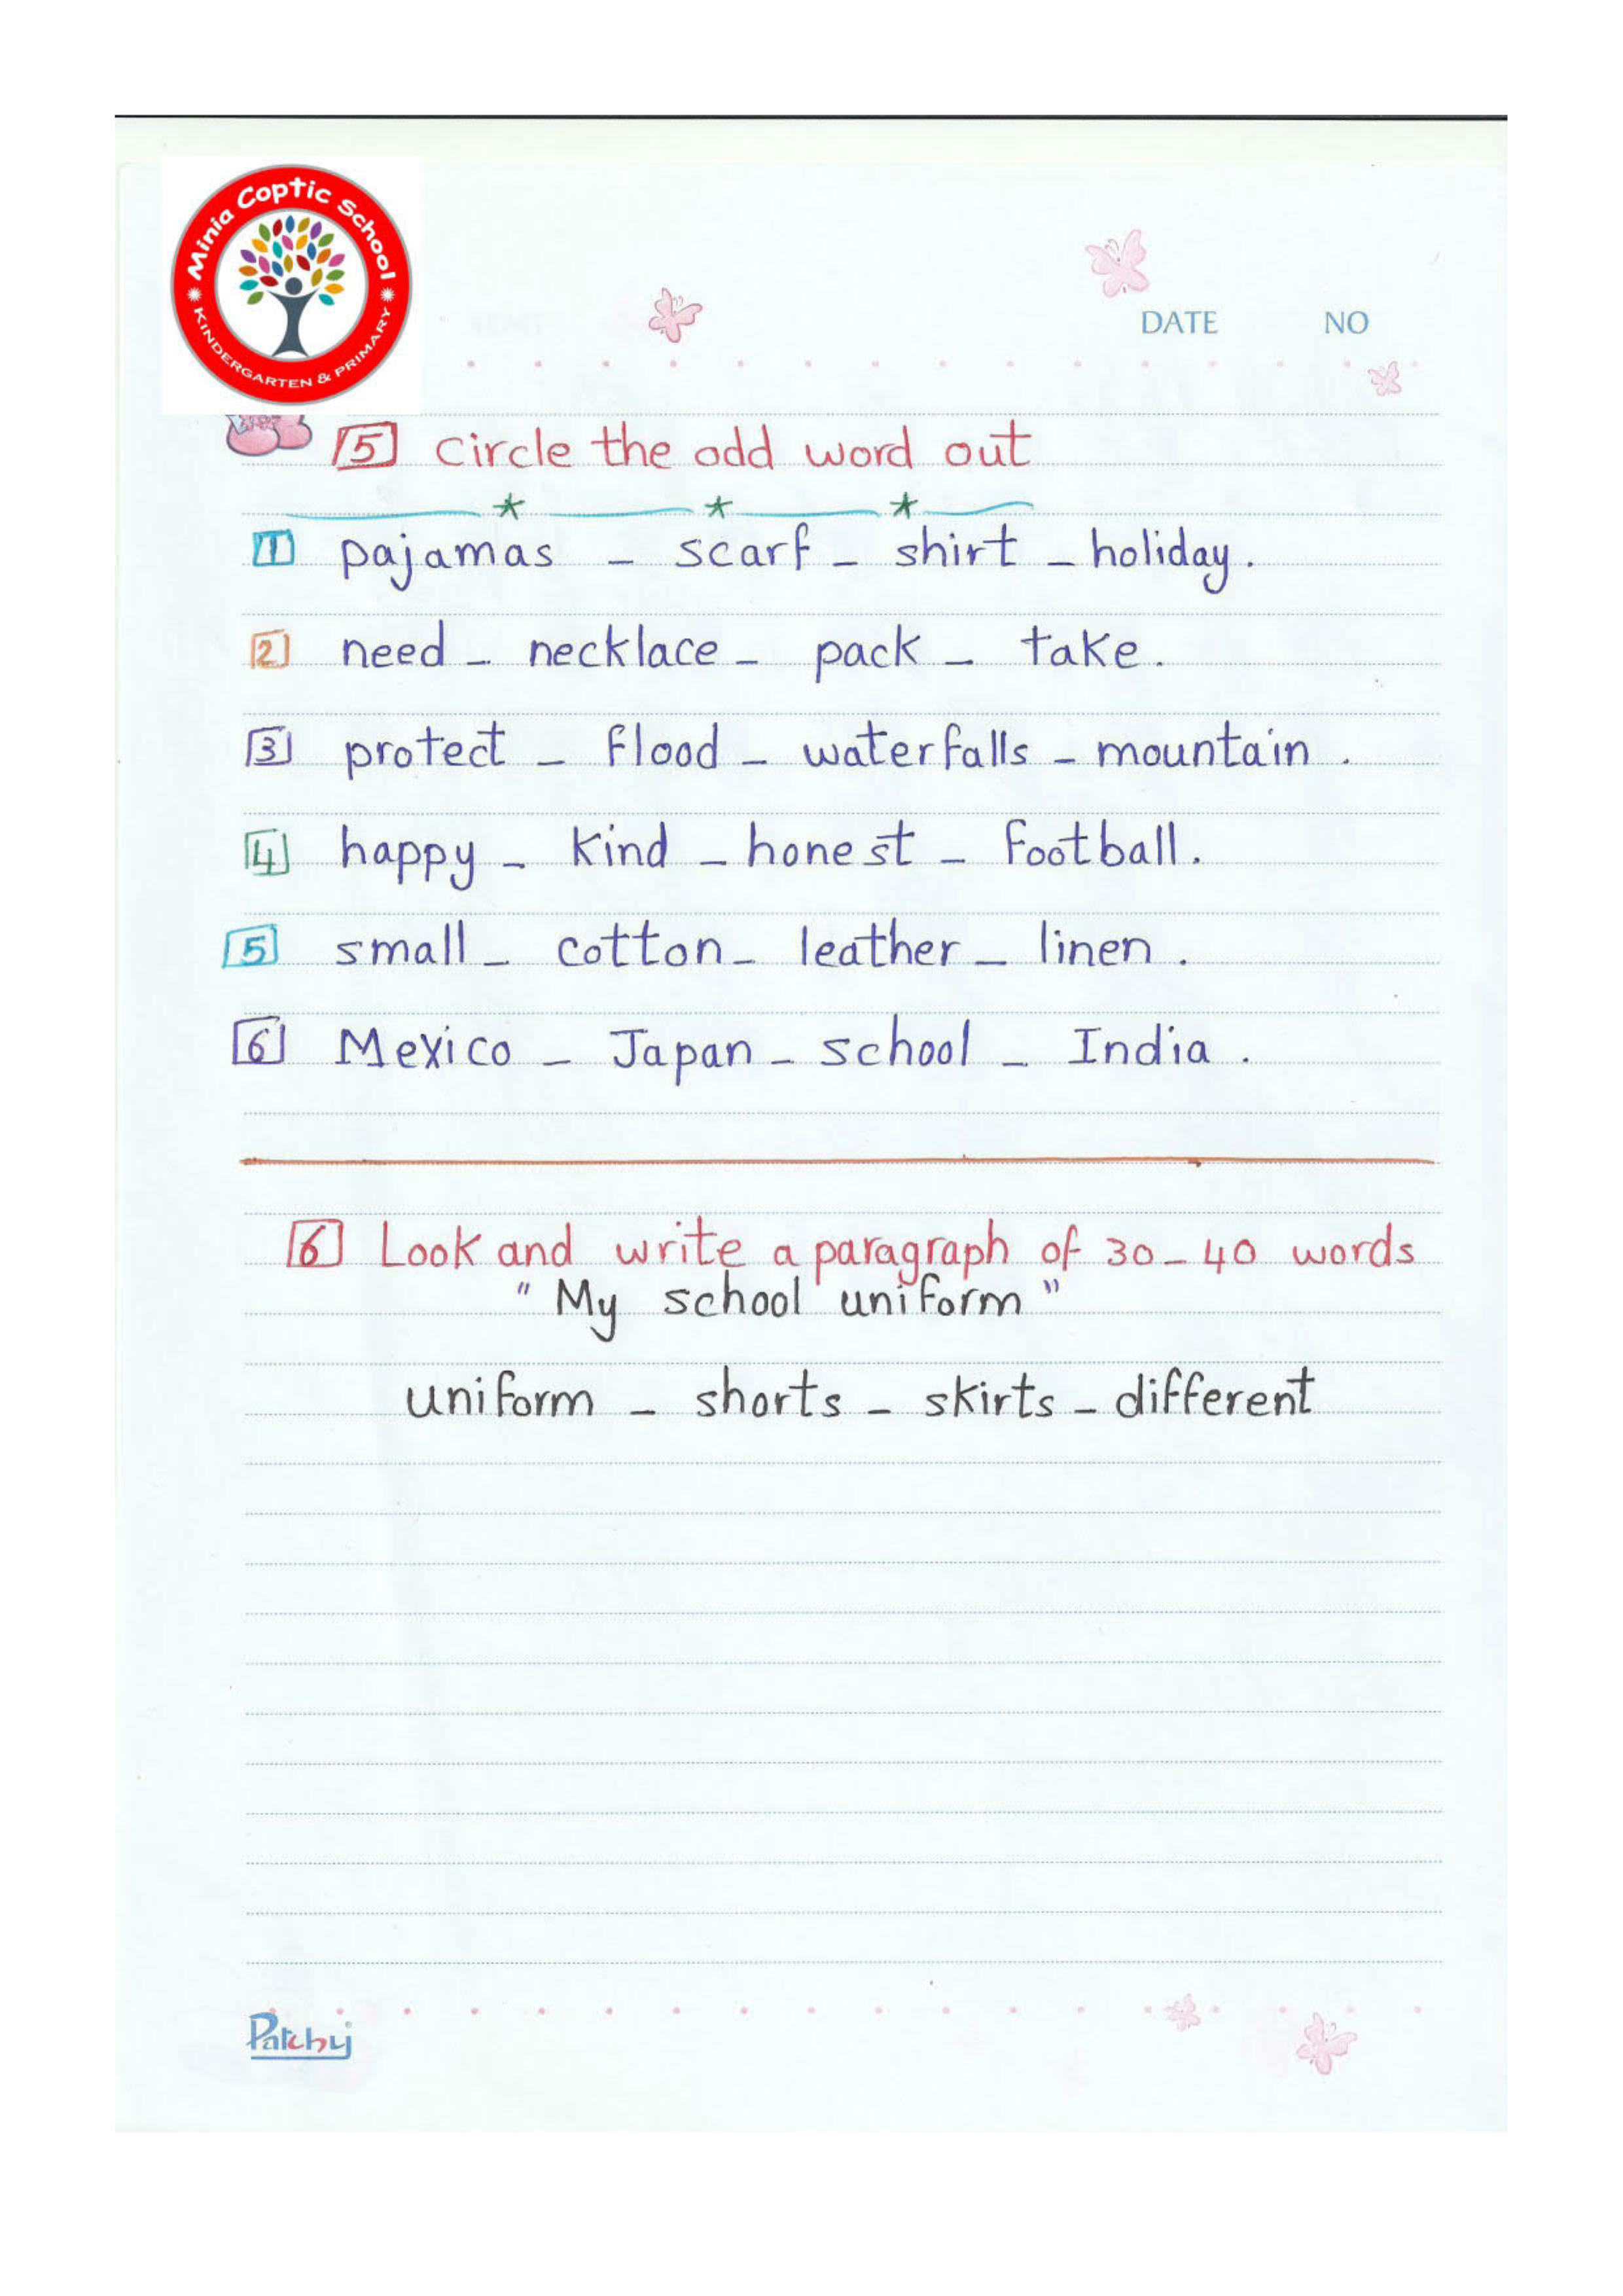 Minia Coptic School
KINDERGARTEN & PRIMARY
DATE NO
5 circle the odd word out
1 pajamas - scarf - shirt - holiday.
2 need - necklace - pack - take.
3 protect - flood - waterfalls - mountain.
4 happy - kind - honest - football.
5 small - cotton - leather - linen.
6 Mexico - Japan - school - India.
6 Look and write a paragraph of 30-40 words
" My school uniform "
uniform - shorts - skirts - different
Patchy